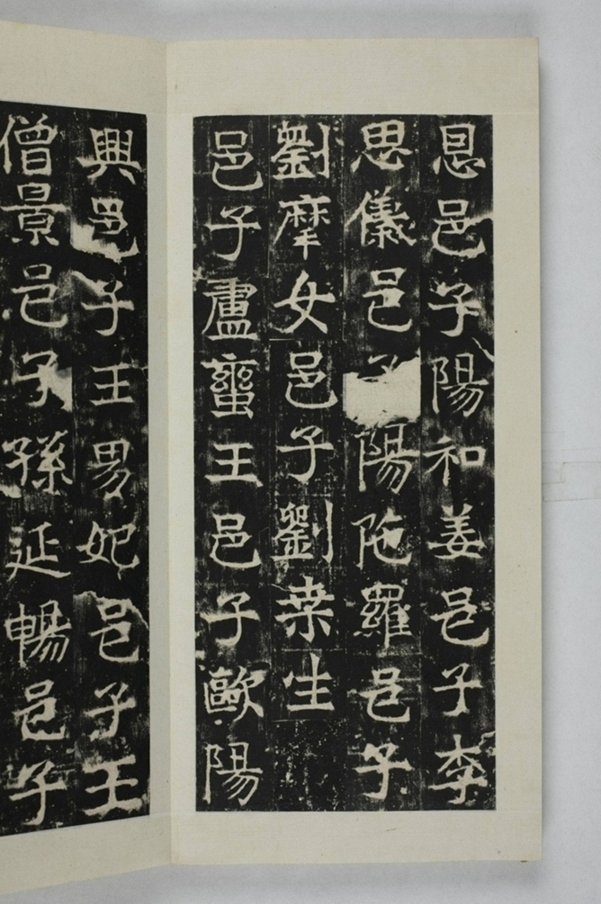 邑子陽和姜邑子李
思儀邑子陽陁羅邑子
劉摩女邑子劉桒生
邑子盧蠻王邑子歐陽
興邑子王男妃邑子王
僧景邑子孫延暢邑子